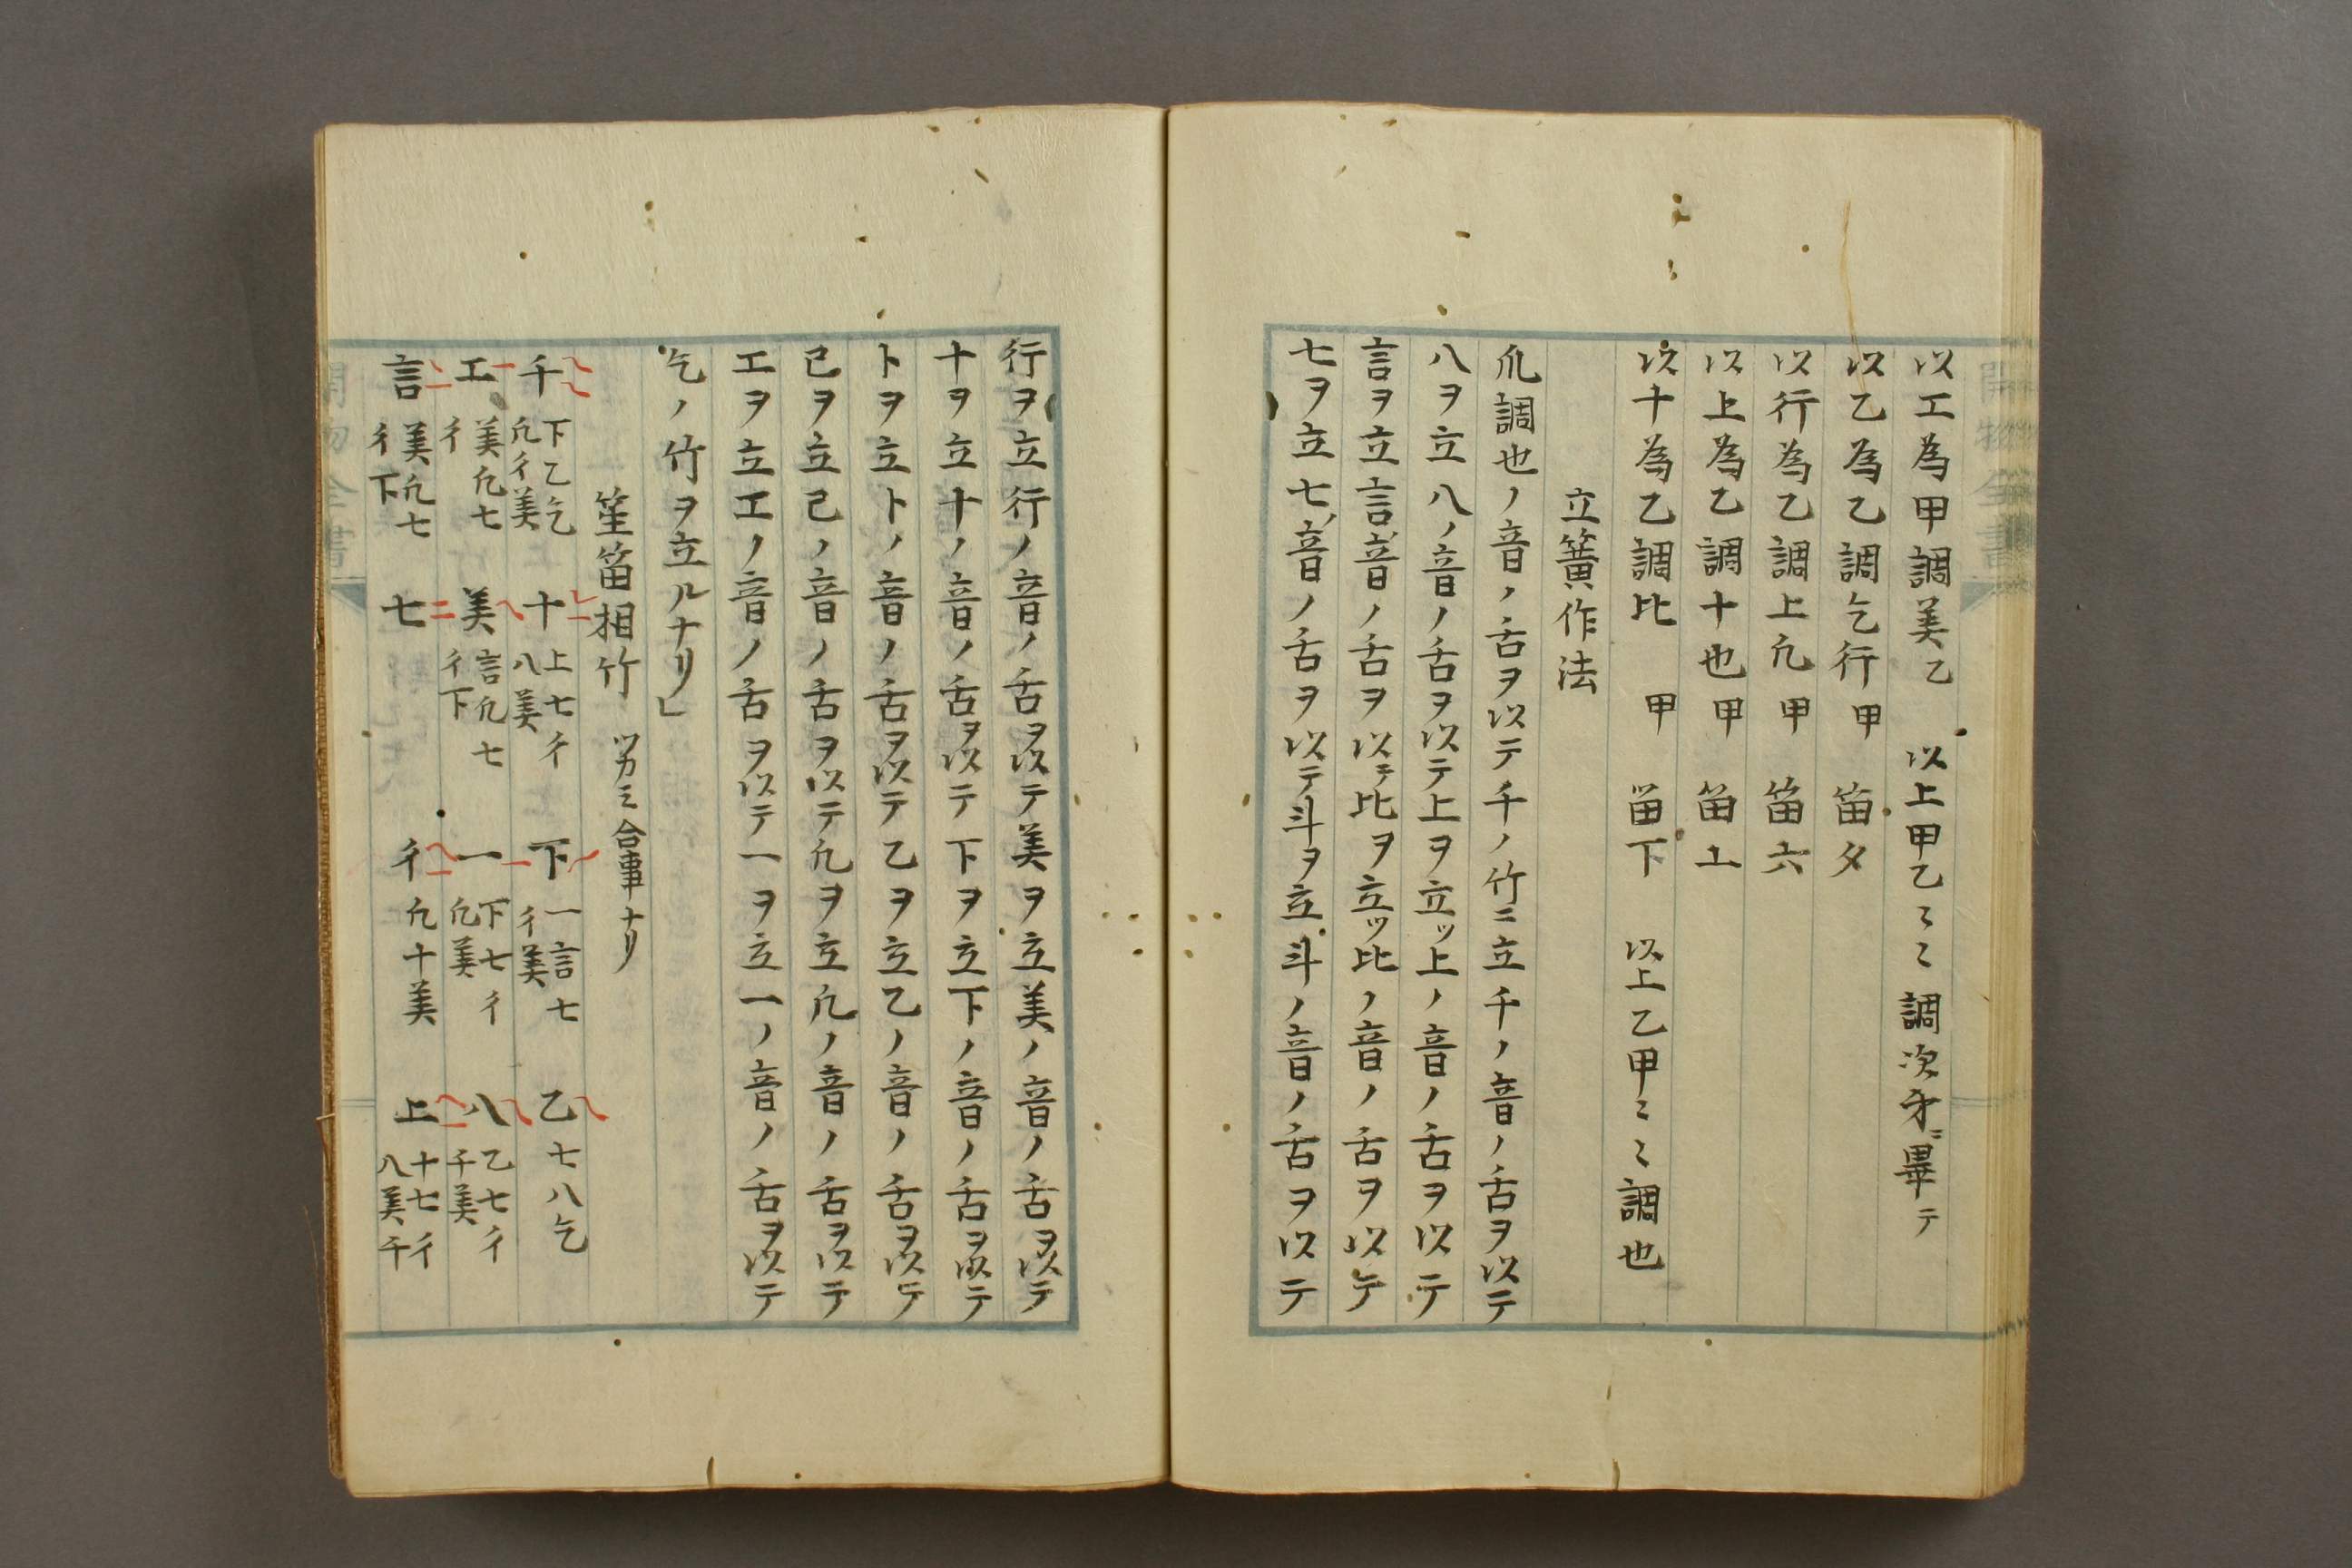 以工為甲調美乙　以上甲乙〻〻調次才ニ畢テ
以乙為乙調乞行甲　笛夕
以行為乙調上凢甲　笛六
以上為乙調十也甲　笛丄
以十為乙調比　甲　笛下　以上乙甲〻〻調也
立簧作法
凢調也ノ音ノ舌ヲ以テ千ノ竹ニ立千ノ音ノ舌ヲ以テ
八ヲ立八ノ音ノ舌ヲ以テ上ヲ立ツ上ノ音ノ舌ヲ以テ
言ヲ立言ノ音ノ舌ヲ以テ比ヲ立ツ比ノ音ノ舌ヲ以テ
七ヲ立七ノ音ノ舌ヲ以テ斗ヲ立斗ノ音ノ舌ヲ以テ
行ヲ立行ノ音ノ舌ヲ以テ美ヲ立美ノ音ノ舌ヲ以テ
十ヲ立十ノ音ノ舌ヲ以テ下ヲ立下ノ音ノ舌ヲ以テ
卜ヲ立卜ノ音ノ舌ヲ以テ乙ヲ立乙ノ音ノ舌ヲ以テ
己ヲ立己ノ音ノ舌ヲ以テ凢ヲ立凢ノ音ノ舌ヲ以テ
工ヲ立工ノ音ノ舌ヲ以テ一ヲ立一ノ音ノ舌ヲ以テ
乞ノ竹ヲ立ルナリ」
笙笛相竹　合事ナリ
千　下乙乞　凢彳美　十　上七彳　八美　下　一言七　彳美　乙　七八乞
工　美凢七　彳　美　言凢七　彳下　一　下七彳　凢美　八　乙七彳　千美
言　美凢七　彳下　七　彳　凢十美　上　十七彳　八美千
開物全書